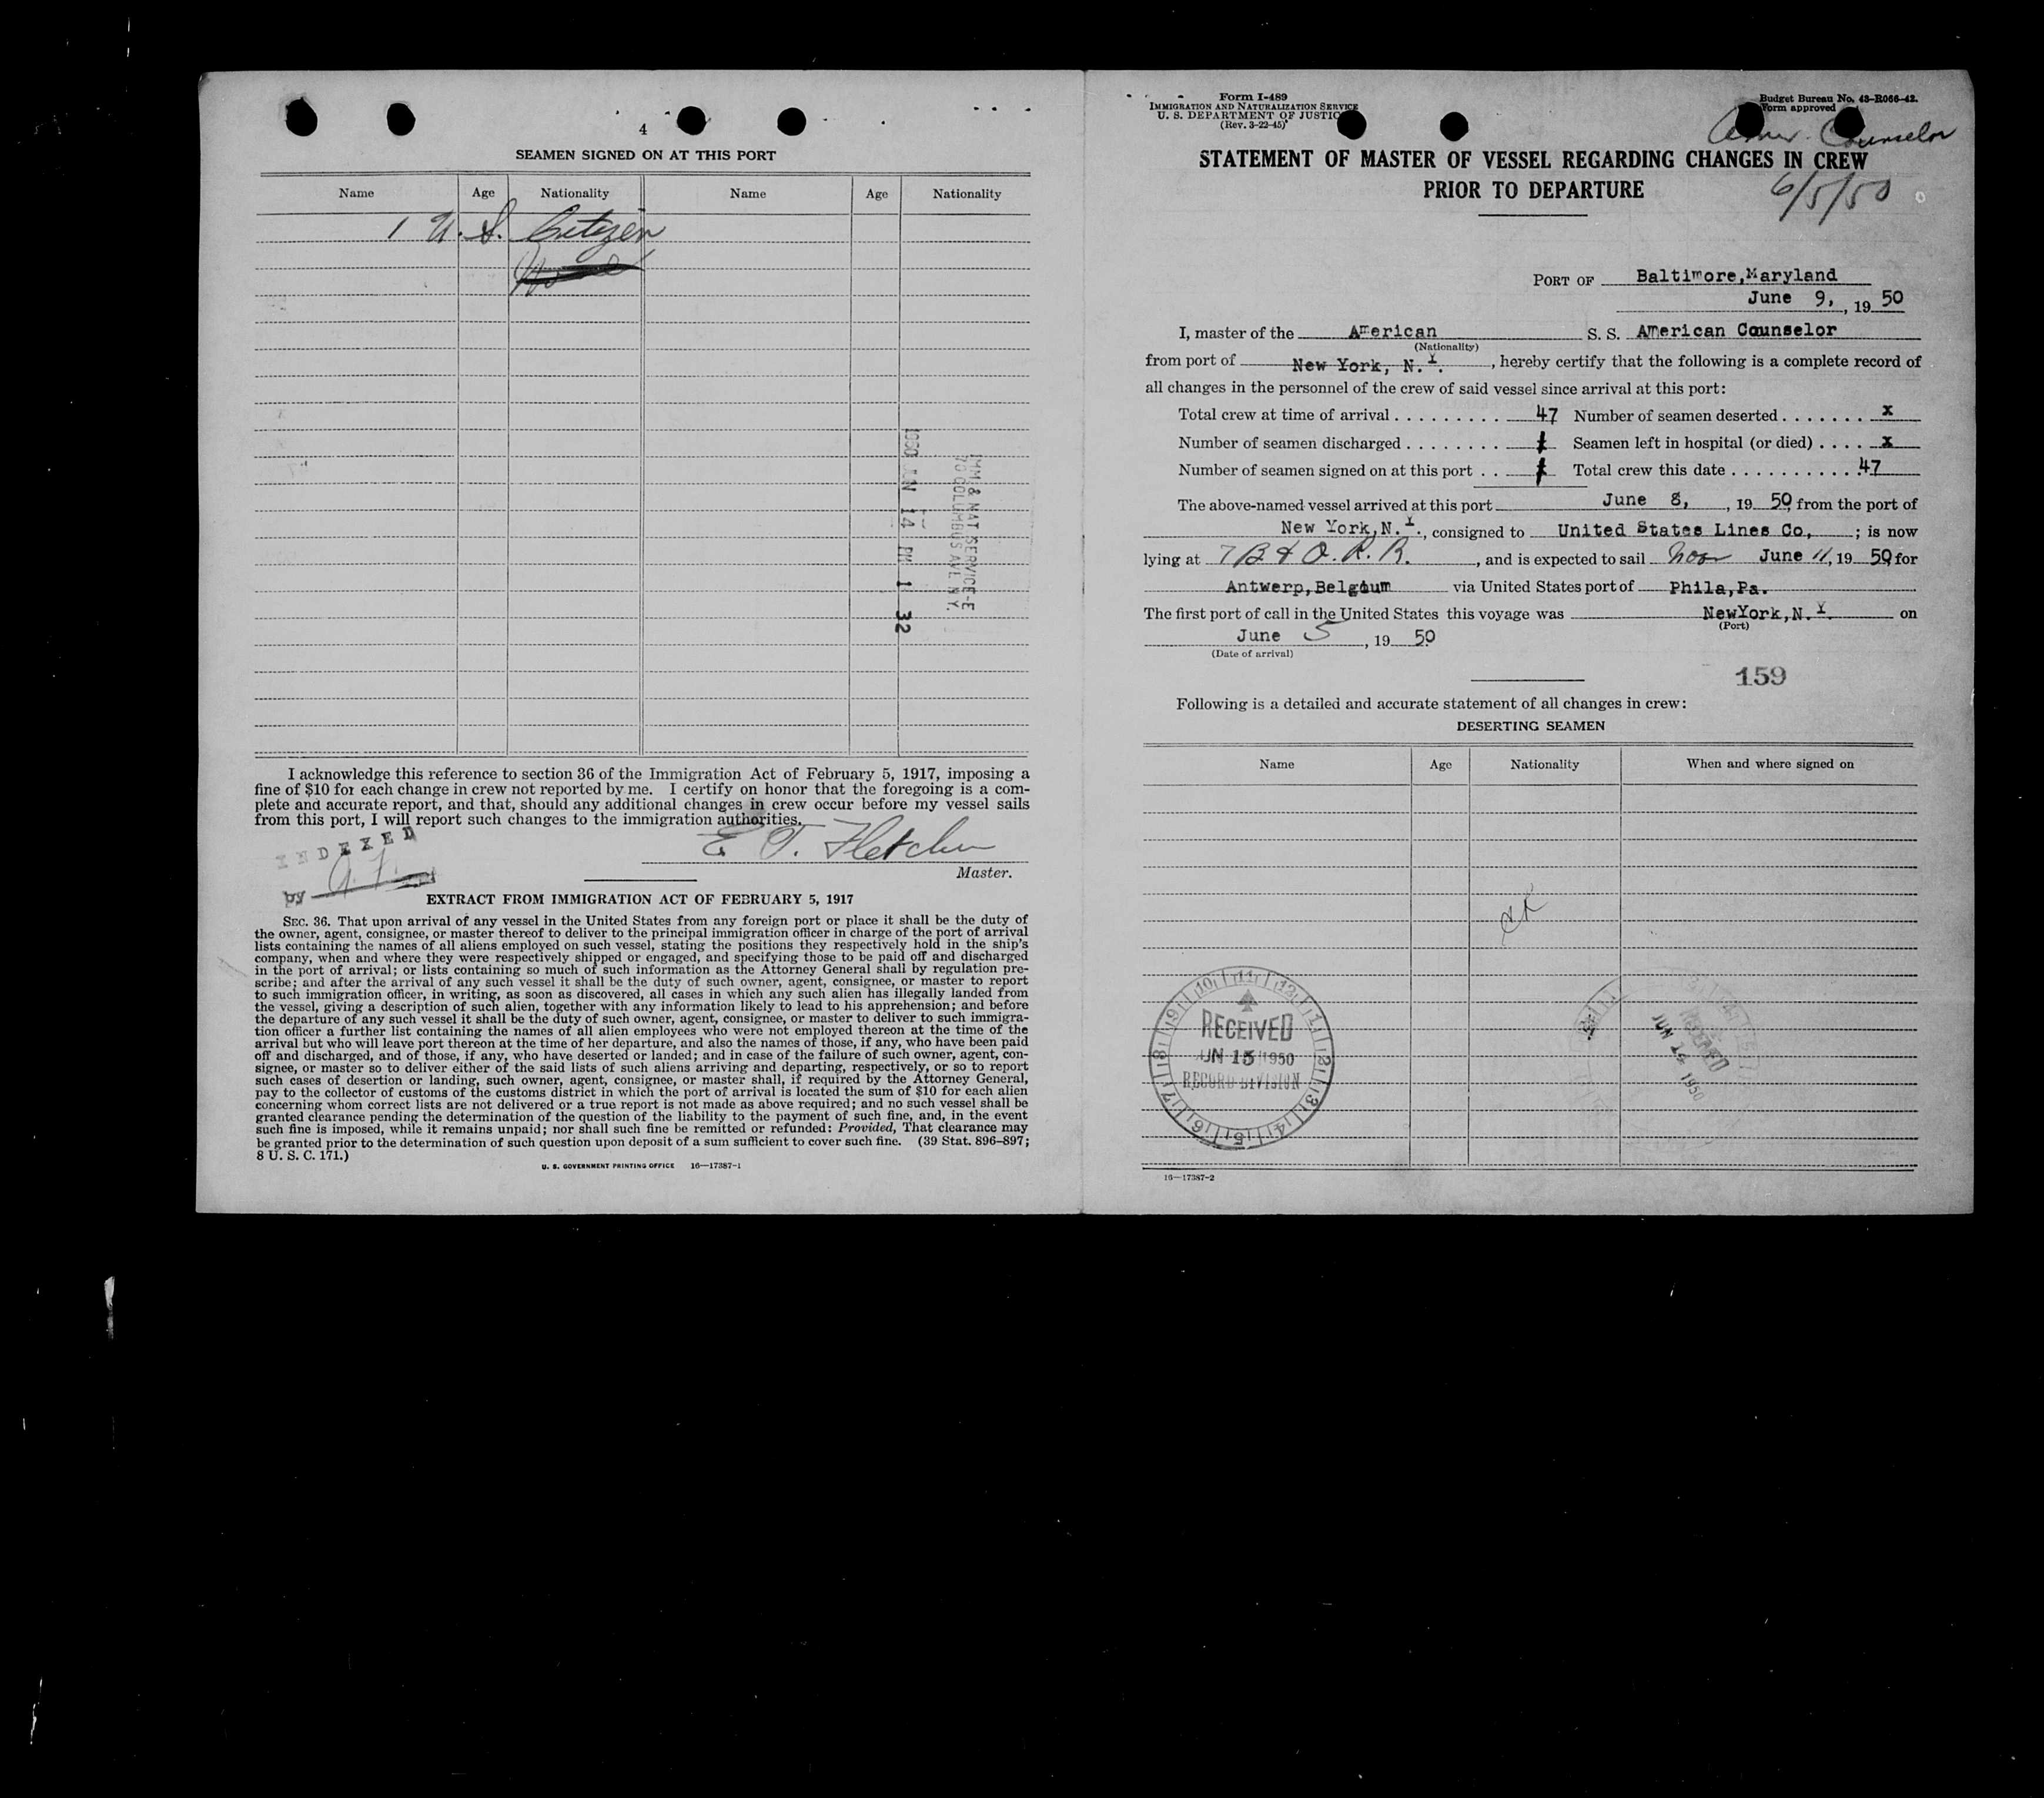 4
SEAMEN SIGNED ON AT THIS PORT
Name Age Nationality Name Age Nationality
1 U. S. Citizen
1950 JUN 14 PM 1 32
IMM & NAT SERVICE-E
70 COLUMBUS AVE N.Y.
I acknowledge this reference to section 36 of the Immigration Act of February 5, 1917, imposing a
fine of $10 for each change in crew not reported by me. I certify on honor that the foregoing is a com-
plete and accurate report, and that, should any additional changes in crew occur before my vessel sails
from this port, I will report such changes to the immigration authorities.
INDEXED
E T. Fletcher
Master.
by
EXTRACT FROM IMMIGRATION ACT OF FEBRUARY 5, 1917
SEC. 36. That upon arrival of any vessel in the United States from any foreign port or place it shall be the duty of
the owner, agent, consignee, or master thereof to deliver to the principal immigration officer in charge of the port of arrival
lists containing the names of all aliens employed on such vessel, stating the positions they respectively hold in the ship's
company, when and where they were respectively shipped or engaged, and specifying those to be paid off and discharged
in the port of arrival; or lists containing so much of such information as the Attorney General shall by regulation pre-
scribe; and after the arrival of any such vessel it shall be the duty of such owner, agent, consignee, or master to report
to such immigration officer, in writing, as soon as discovered, all cases in which any such alien has illegally landed from
the vessel, giving a description of such alien, together with any information likely to lead to his apprehension; and before
the departure of any such vessel it shall be the duty of such owner, agent, consignee, or master to deliver to such immigra-
tion officer a further list containing the names of all alien employees who were not employed thereon at the time of the
arrival but who will leave port thereon at the time of her departure, and also the names of those, if any, who have been paid
off and discharged, and of those, if any, who have deserted or landed; and in case of the failure of such owner, agent, con-
signee, or master so to deliver either of the said lists of such aliens arriving and departing, respectively, or so to report
such cases of desertion or landing, such owner, agent, consignee, or master shall, if required by the Attorney General,
pay to the collector of customs of the customs district in which the port of arrival is located the sum of $10 for each alien
concerning whom correct lists are not delivered or a true report is not made as above required; and no such vessel shall be
granted clearance pending the determination of the question of the liability to the payment of such fine, and, in the event
such fine is imposed, while it remains unpaid; nor shall such fine be remitted or refunded: Provided, That clearance may
be granted prior to the determination of such question upon deposit of a sum sufficient to cover such fine. (39 Stat. 896–897;
8 U. S. C. 171.)
U. S. GOVERNMENT PRINTING OFFICE 16—17387-1
Form I-489
IMMIGRATION AND NATURALIZATION SERVICE
U. S. DEPARTMENT OF JUSTIC
(Rev. 3-22-45)
Budget Bureau No. 43-R066-42.
Form approved
Amer. Counselor
STATEMENT OF MASTER OF VESSEL REGARDING CHANGES IN CREW
PRIOR TO DEPARTURE
6/5/50
PORT OF Baltimore,Maryland
June 9, , 19 50
I, master of the American S. S. American Counselor
(Nationality)
from port of New York, N.Y. , hereby certify that the following is a complete record of
all changes in the personnel of the crew of said vessel since arrival at this port:
Total crew at time of arrival . . . . . . . . . 47 Number of seamen deserted . . . . . . . x
Number of seamen discharged . . . . . . . . 1 Seamen left in hospital (or died) . . . . x
Number of seamen signed on at this port . . 1 Total crew this date . . . . . . . . . . . 47
The above-named vessel arrived at this port June 8, , 19 50 from the port of
New York,N.Y. , consigned to United States Lines Co, ; is now
lying at 7 B & O. R. R. , and is expected to sail Noon June 11, 19 50 for
Antwerp,Belgium via United States port of Phila,Pa.
The first port of call in the United States this voyage was NewYork,N.Y. on
(Port)
June 5 , 19 50
(Date of arrival)
159
Following is a detailed and accurate statement of all changes in crew:
DESERTING SEAMEN
Name Age Nationality When and where signed on
RECEIVED
JUN 15 1950
RECORD DIVISION
RECEIVED
JUN 14 1950
16—17387-2